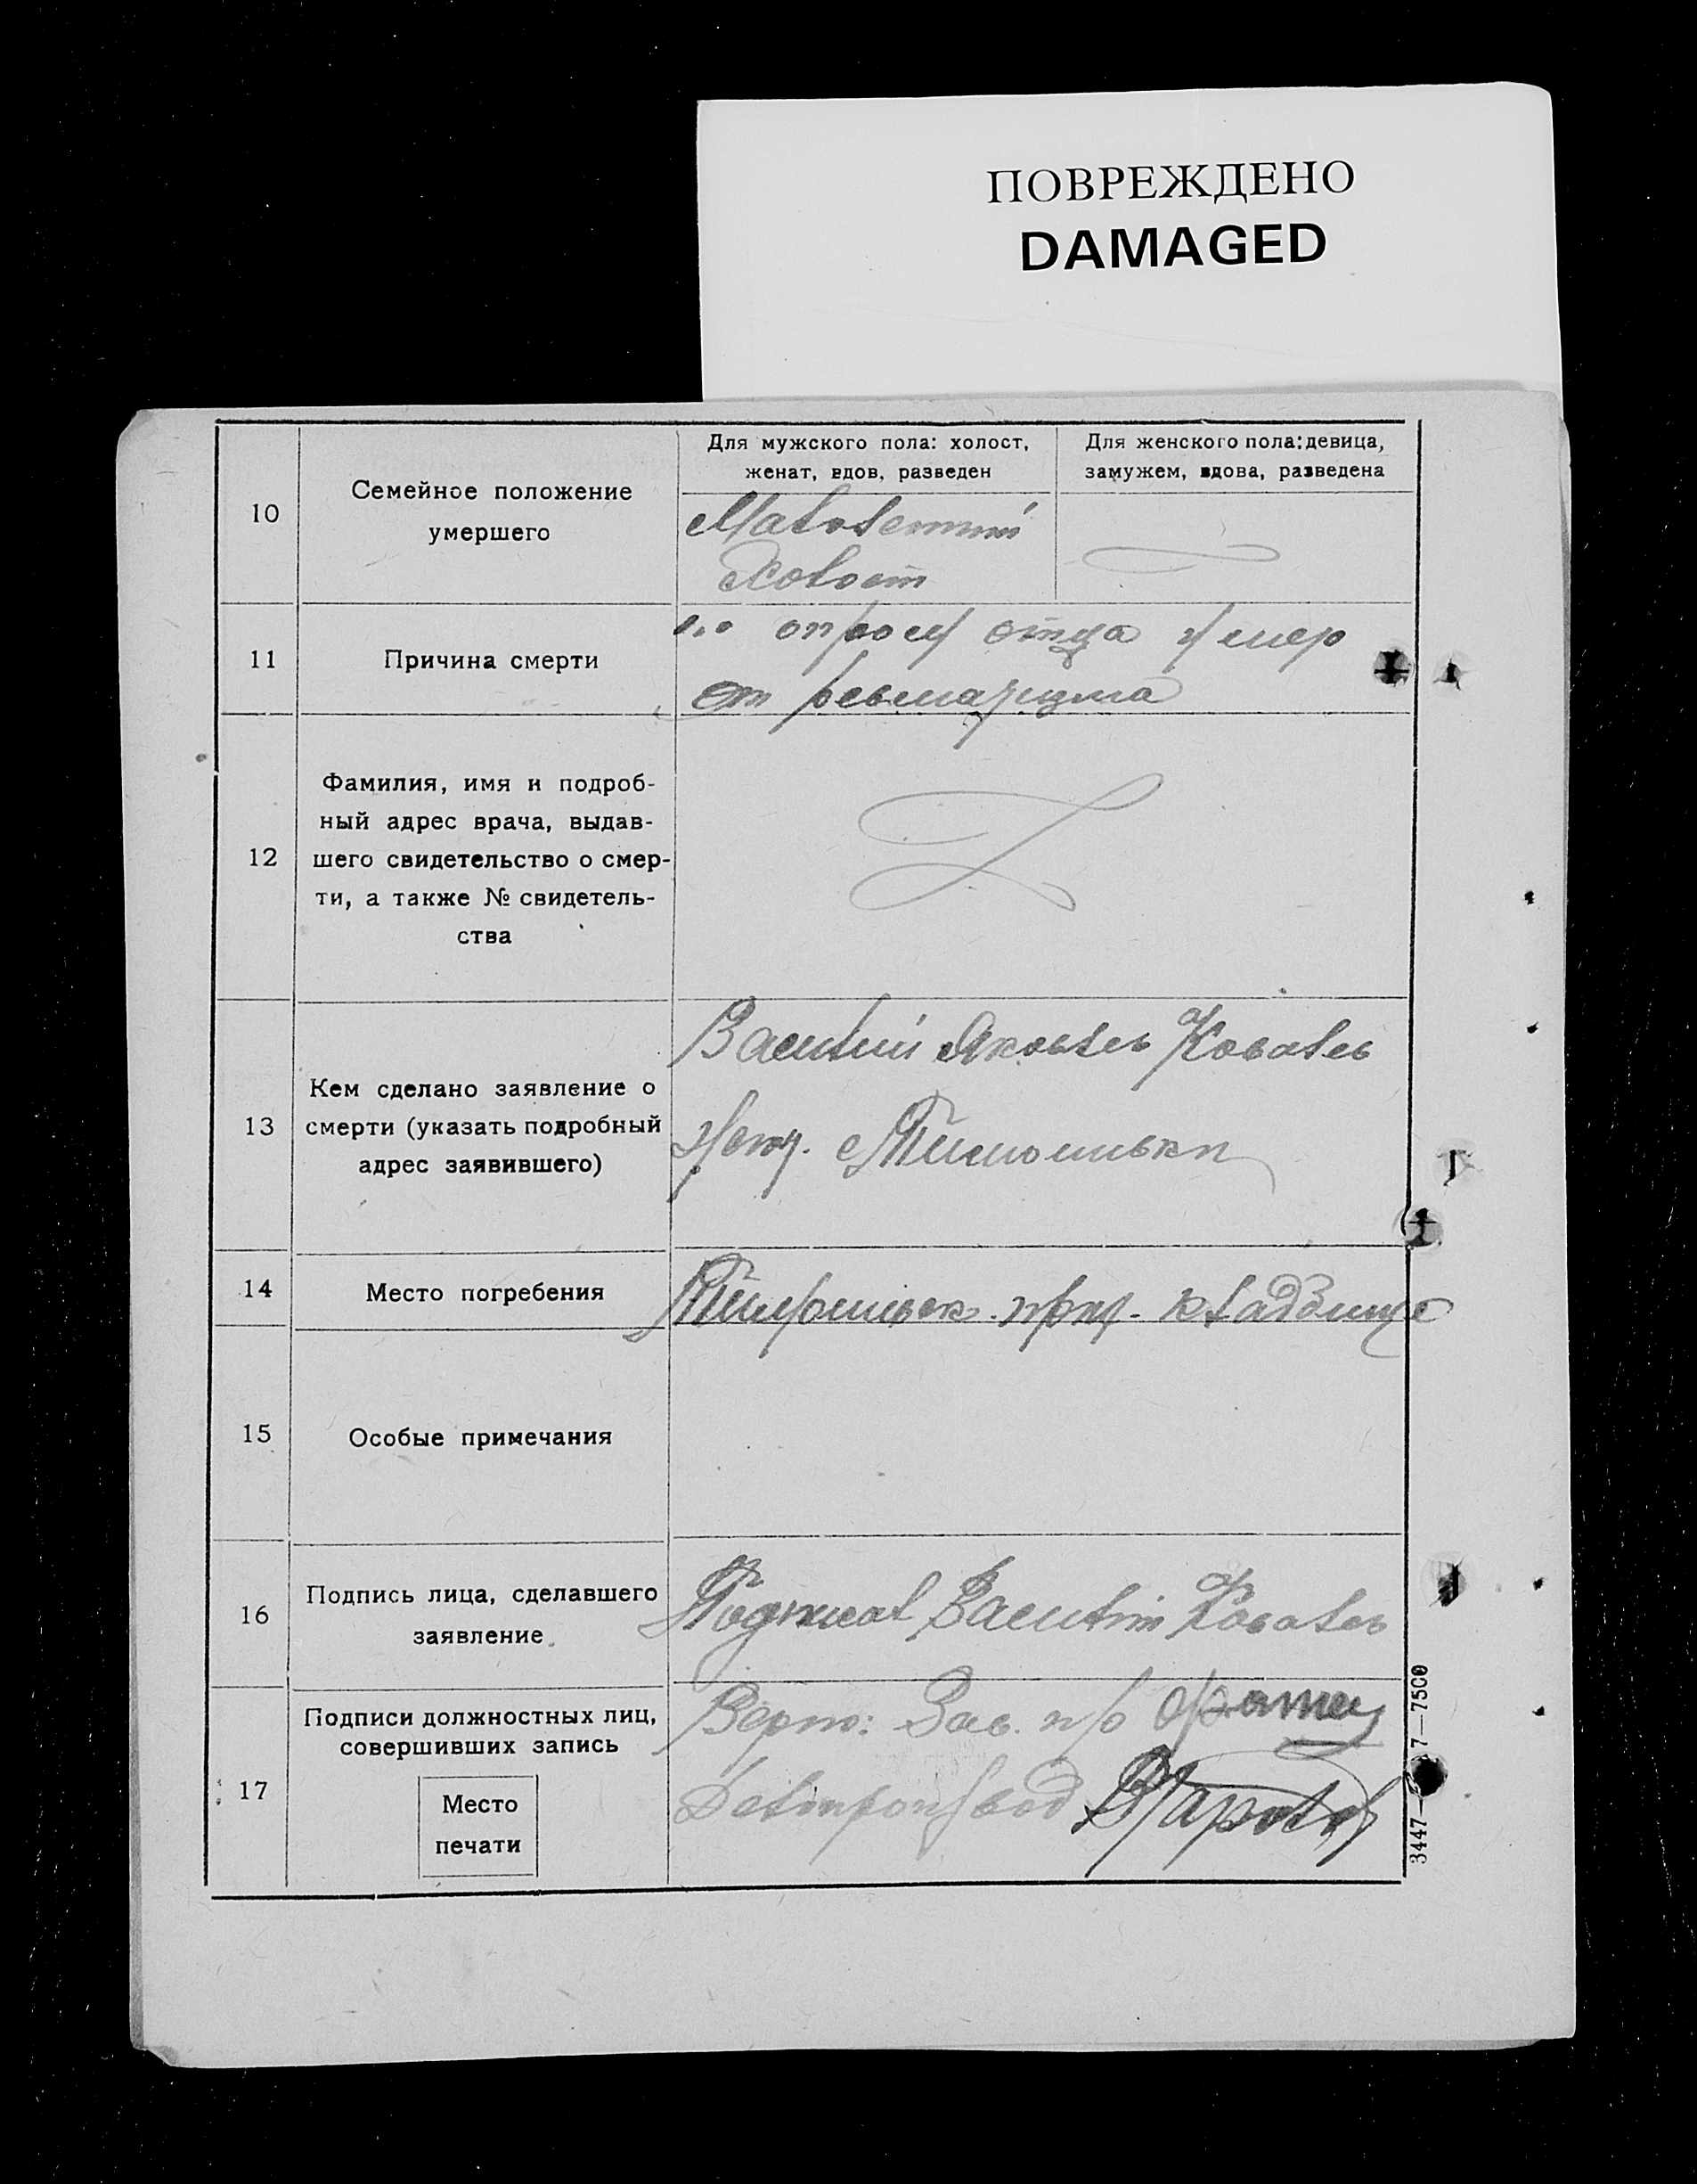 ПОВРЕЖДЕНО
DAMAGED
10
Семейное положение
умершего
Для мужского пола: холост,
женат, вдов, разведен
Для женского пола: девица,
замужем, вдова, разведена
Малолетний
Холост
11
Причина смерти
опросу отца умер
от ревматизма
12
Фамилия, имя и подроб-
ный адрес врача, выдав-
шего свидетельство о смер-
ти, а также № свидетель-
ства
13
Кем сделано заявление о
смерти (указать подробный
адрес заявившего)
Василий Яковлев Ковалев
хут.
14
Место погребения
кладбище
15
Особые примечания
16
Подпись лица, сделавшего
заявление.
Подписал Василий Ковалев
17
Подписи должностных лиц,
совершивших запись
Место
печати
Верно: Зав. п/о
Делопроизвод
3447— 7—7500